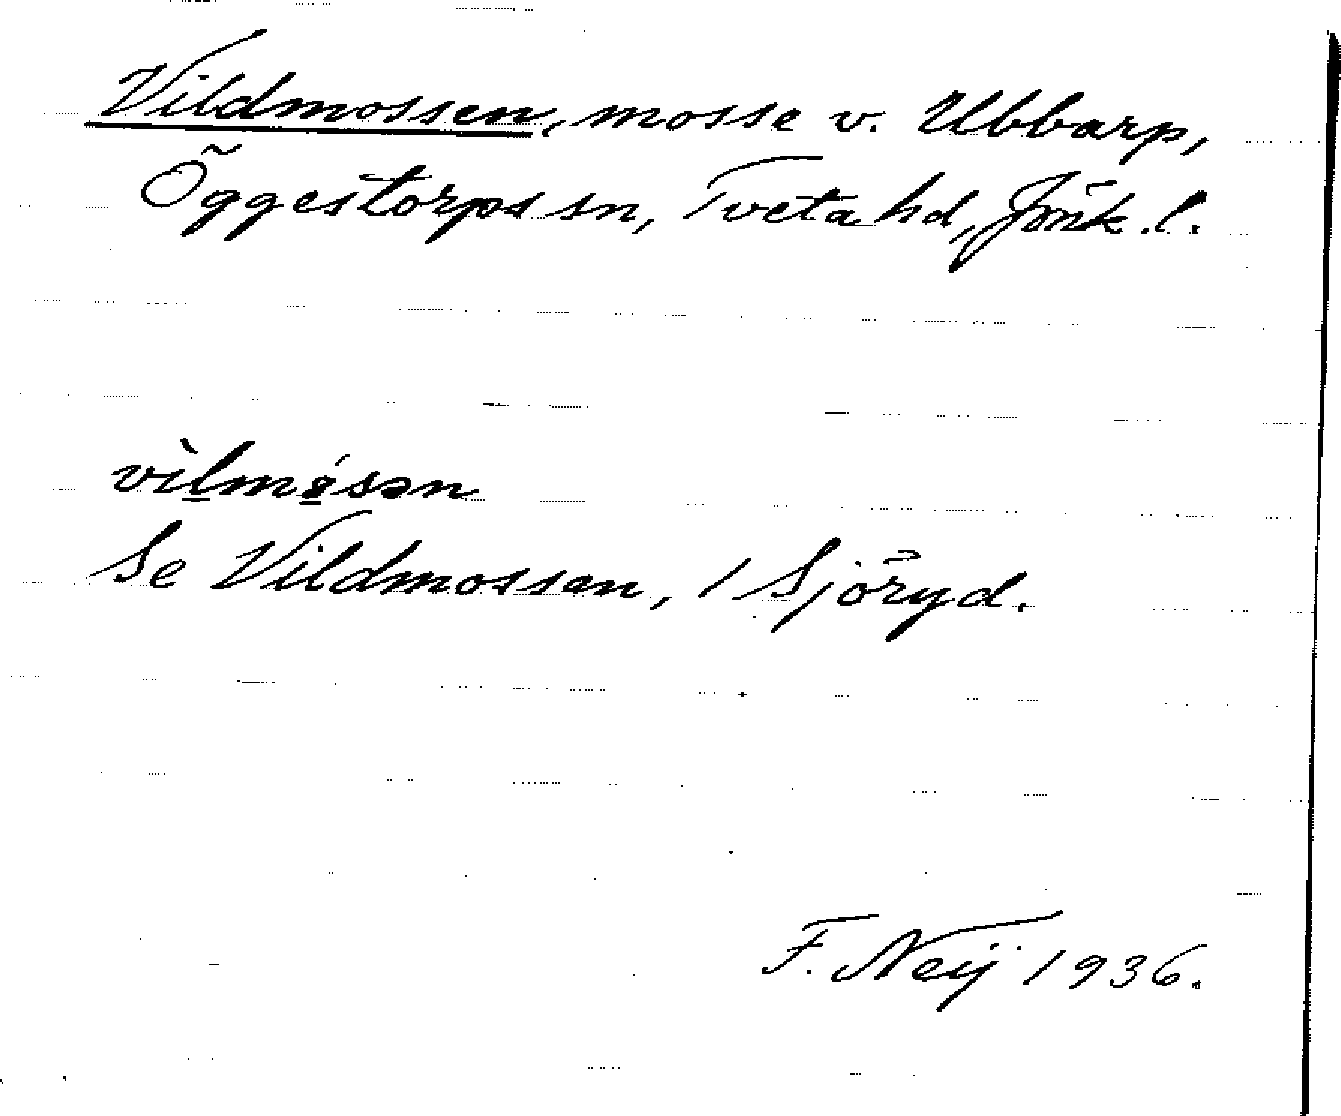 Vildmossen, mosse v. Ubbarp,
Öggestorps sn, Tveta hd, Jönk. l.
Se Vildmossen, 1 Sjöryd.
F. Neij 1936.